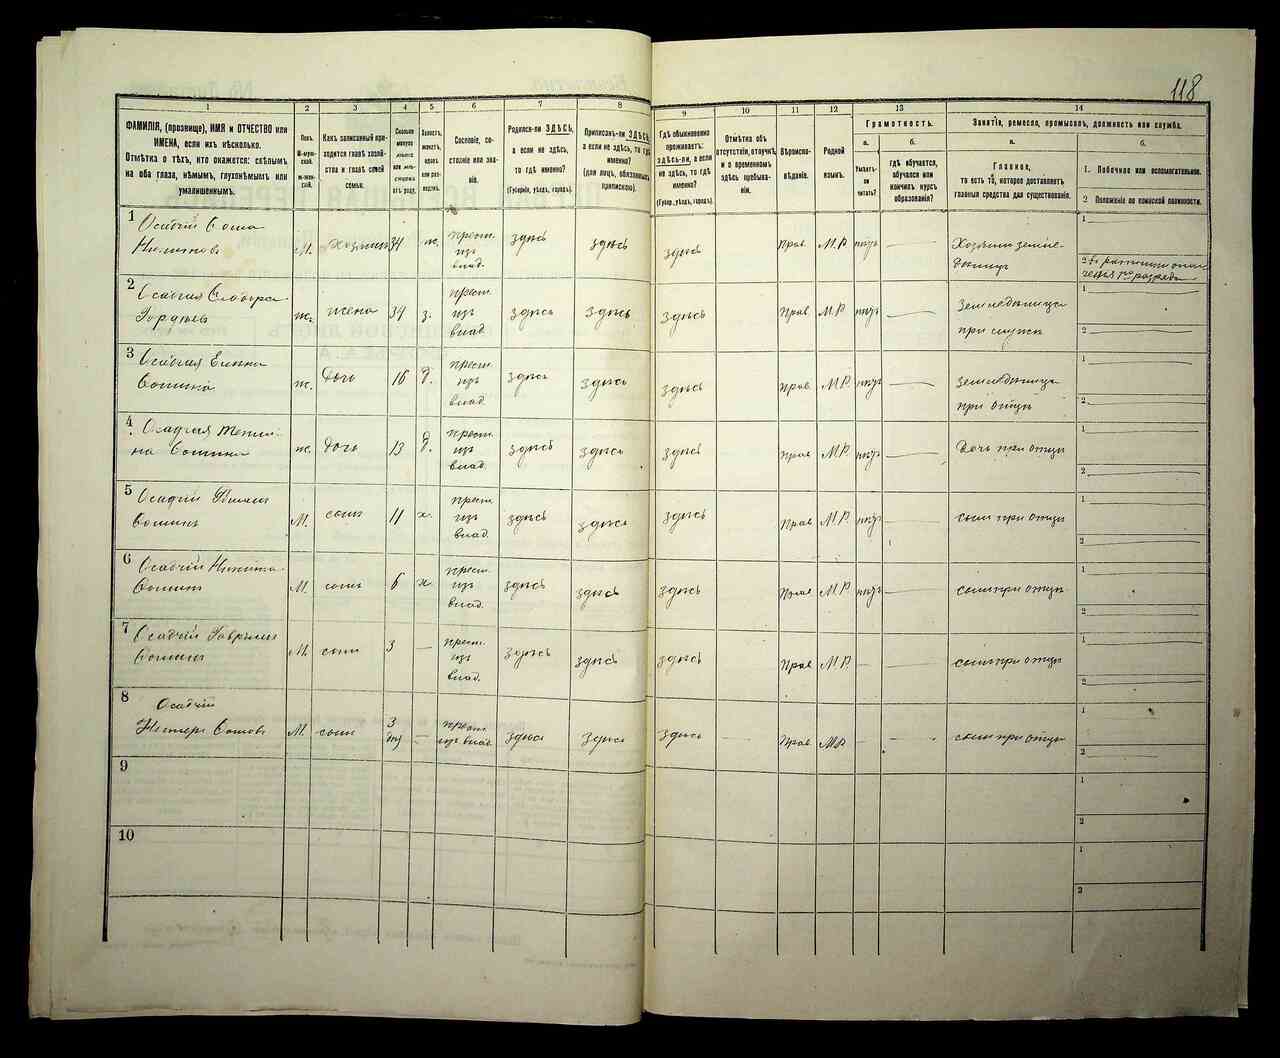 118
1
2
3
4
5
6
7
8
9
10
11
12
13
14
ФАМИЛІЯ, (прозвище), ИМЯ и ОТЧЕСТВО или
ИМЕНА, если ихъ нѣсколько.
Отмѣтка о тѣхъ, кто окажется: слѣпымъ
на оба глаза, нѣмымъ, глухонѣмымъ или
умалишеннымъ.
Полъ.
М-муж-
ской.
ж-жен-
ской.
Какъ записанный при-
ходится главѣ хозяй-
ства и главѣ своей
семьи.
Сколько
минуло
лѣтъ
или мѣ-
сяцевъ
отъ роду.
Холостъ,
женатъ,
вдовъ
или раз-
веденъ.
Сословіе, со-
стояніе или зва-
ніе.
Родился-ли ЗДѢСЬ,
а если не здѣсь,
то гдѣ именно?
(Губернія, уѣздъ, городъ).
Приписанъ-ли ЗДѢСЬ,
а если не здѣсь, то гдѣ
именно?
(для лицъ, обязанныхъ
припискою).
Гдѣ обыкновенно
проживаетъ:
здѣсь-ли, а если
не здѣсь, то гдѣ
именно?
(Губер., уѣздъ, городъ).
Отмѣтка объ
отсутствіи, отлучкѣ
и о временномъ
здѣсь пребыва-
ніи.
Вѣроиспо-
вѣданіе.
Родной
языкъ.
Грамотность.
а.
Умѣетъ-
ли
читать?
б.
гдѣ обучается,
обучался или
кончилъ курсъ
образованія?
Занятія, ремесло, промыселъ, должность или служба.
а.
Главное,
то есть то, которое доставляетъ
главныя средства для существованія.
б.
1. Побочное или вспомогательное.
2 Положеніе по воинской повинности.
1 Осадчій
М. хозяинъ 34 ж. крест. из влад. здѣсь здѣсь здѣсь Прав. М.Р. нѣтъ — Хозяинъ земле-
дѣлецъ
1
2
2 Осадчая
Гордѣева ж. жена 34 з. крест. из влад. здѣсь здѣсь здѣсь Прав. М.Р. нѣтъ — Земледѣлица
при мужѣ
1
2
3 Осадчая Елена
ж. дочь 16 д. крест. из влад. здѣсь здѣсь здѣсь Прав. М.Р. нѣтъ — Земледѣлица
при отцѣ
1
2
4 Осадчая
ж. дочь 13 д. крест. из влад. здѣсь здѣсь здѣсь Прав. М.Р. нѣтъ — Дочь при отцѣ
1
2
5 Осадчій
М. сынъ 11 х. крест. из влад. здѣсь здѣсь здѣсь Прав. М.Р. нѣтъ — сынъ при отцѣ
1
2
6 Осадчій Никита
М. сынъ 6 х крест. из влад. здѣсь здѣсь здѣсь Прав. М.Р. нѣтъ — сынъ при отцѣ
1
2
7 Осадчій Гаврыилъ
М. сынъ 3 — крест. из влад. здѣсь здѣсь здѣсь Прав. М.Р. — — сынъ при отцѣ
1
2
8 Осадчій
Нестеръ М. сынъ 3 — крест. из влад. здѣсь здѣсь здѣсь — Прав. М.Р. — — сынъ при отцѣ
1
2
9
1
2
10
1
2